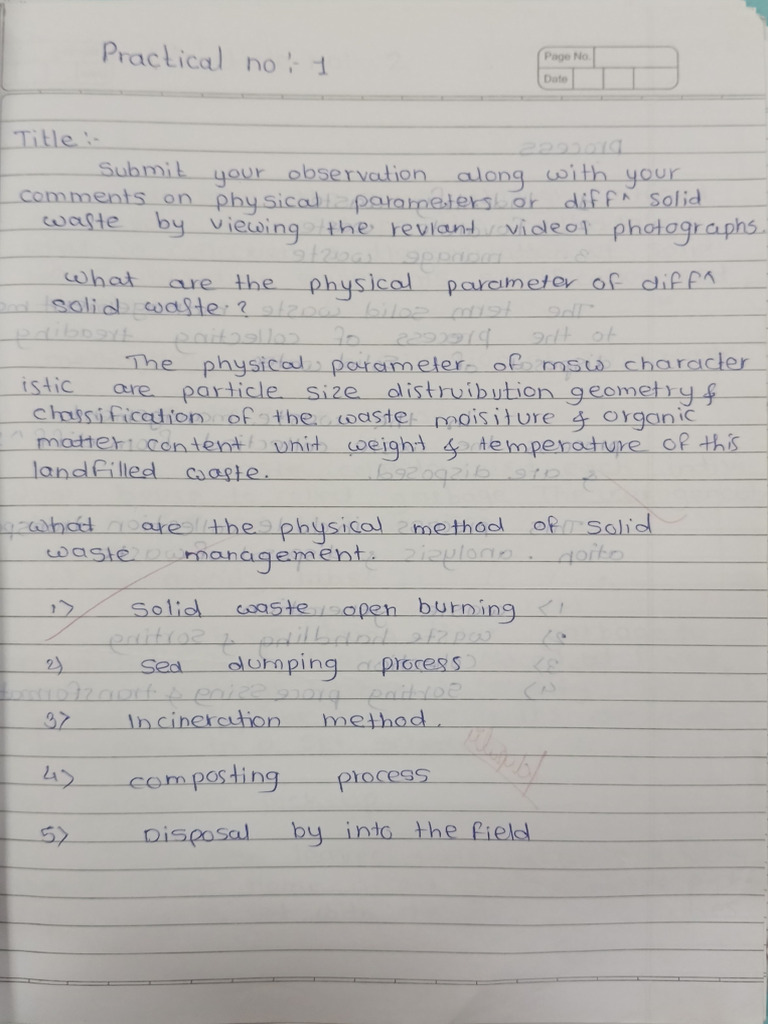 Practical no :- 1
Page No.
Date
Title :-
Submit your observation along with your
comments on physical parameters or diff^ solid
waste by viewing the revlant videot photographs.
what are the physical parameter of diff^
solid waste ?
The physical parameter of msw character
istic are particle size distruibution geometry &
chassification of the waste moisiture & organic
matter content unit weight & temperature of this
landfilled waste.
what are the physical method of solid
waste management.
1) solid waste open burning
2) sea dumping process
3) Incineration method.
4) composting process
5) Disposal by into the field